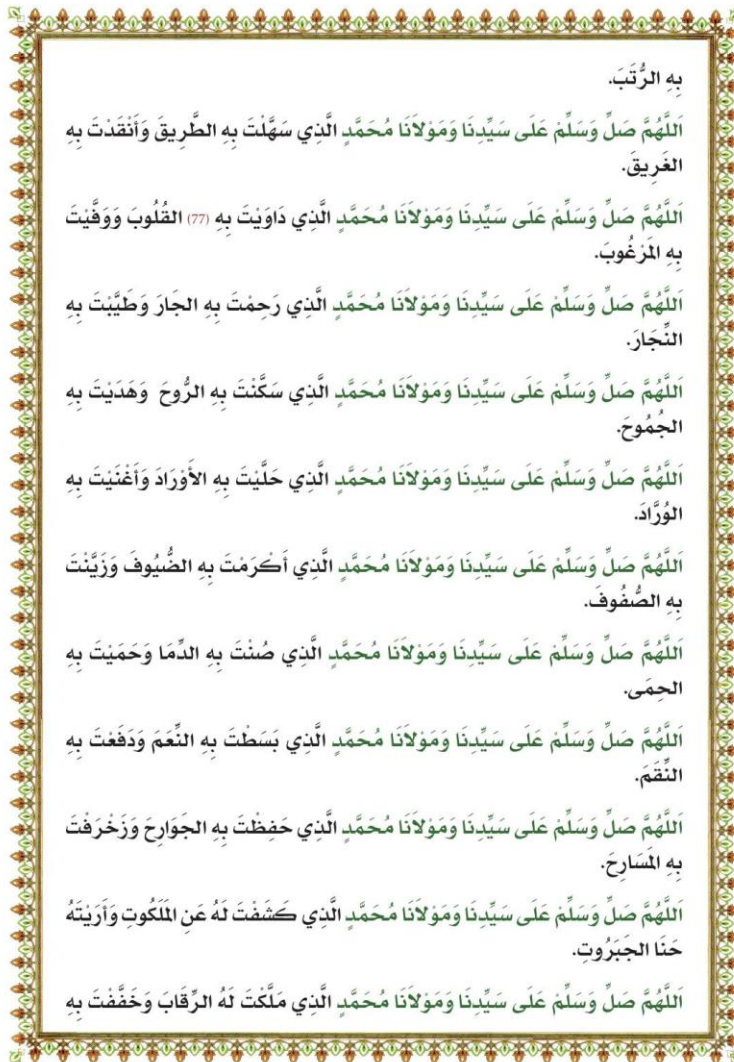 بِهِ الرُّتَبَ.
اَللَّهُمَّ صَلِّ وَسَلِّمْ عَلَى سَيِّدِنَا وَمَوْلاَنَا مُحَمَّدٍ الَّذِي سَهَّلْتَ بِهِ الطَّرِيقَ وَأَنْقَدْتَ بِهِ
الغَرِيقَ.
اَللَّهُمَّ صَلِّ وَسَلِّمْ عَلَى سَيِّدِنَا وَمَوْلاَنَا مُحَمَّدٍ الَّذِي دَاوَيْتَ بِهِ (77) القُلُوبَ وَوَفَّيْتَ
بِهِ المَرْغُوبَ.
اَللَّهُمَّ صَلِّ وَسَلِّمْ عَلَى سَيِّدِنَا وَمَوْلاَنَا مُحَمَّدٍ الَّذِي رَحِمْتَ بِهِ الجَارَ وَطَيَّبْتَ بِهِ
النِّجَارَ.
اَللَّهُمَّ صَلِّ وَسَلِّمْ عَلَى سَيِّدِنَا وَمَوْلاَنَا مُحَمَّدٍ الَّذِي سَكَّنْتَ بِهِ الرُّوحَ وَهَدَيْتَ بِهِ
الجُمُوحَ.
اَللَّهُمَّ صَلِّ وَسَلِّمْ عَلَى سَيِّدِنَا وَمَوْلاَنَا مُحَمَّدٍ الَّذِي حَلَّيْتَ بِهِ الأَوْرَادَ وَأَغْنَيْتَ بِهِ
الوُرَّادَ.
اَللَّهُمَّ صَلِّ وَسَلِّمْ عَلَى سَيِّدِنَا وَمَوْلاَنَا مُحَمَّدٍ الَّذِي أَكْرَمْتَ بِهِ الضُّيُوفَ وَزَيَّنْتَ
بِهِ الصُّفُوفَ.
اَللَّهُمَّ صَلِّ وَسَلِّمْ عَلَى سَيِّدِنَا وَمَوْلاَنَا مُحَمَّدٍ الَّذِي صُنْتَ بِهِ الدِّمَا وَحَمَيْتَ بِهِ
الحِمَى.
اَللَّهُمَّ صَلِّ وَسَلِّمْ عَلَى سَيِّدِنَا وَمَوْلاَنَا مُحَمَّدٍ الَّذِي بَسَطْتَ بِهِ النِّعَمَ وَدَفَعْتَ بِهِ
النِّقَمَ.
اَللَّهُمَّ صَلِّ وَسَلِّمْ عَلَى سَيِّدِنَا وَمَوْلاَنَا مُحَمَّدٍ الَّذِي حَفِظْتَ بِهِ الجَوَارِحَ وَزَخْرَفْتَ
بِهِ المَسَارِحَ.
اَللَّهُمَّ صَلِّ وَسَلِّمْ عَلَى سَيِّدِنَا وَمَوْلاَنَا مُحَمَّدٍ الَّذِي كَشَفْتَ لَهُ عَنِ المَلَكُوتِ وَأَرَيْتَهُ
حَنَا الجَبَرُوتِ.
اَللَّهُمَّ صَلِّ وَسَلِّمْ عَلَى سَيِّدِنَا وَمَوْلاَنَا مُحَمَّدٍ الَّذِي مَلَّكْتَ لَهُ الرِّقَابَ وَخَفَّفْتَ بِهِ